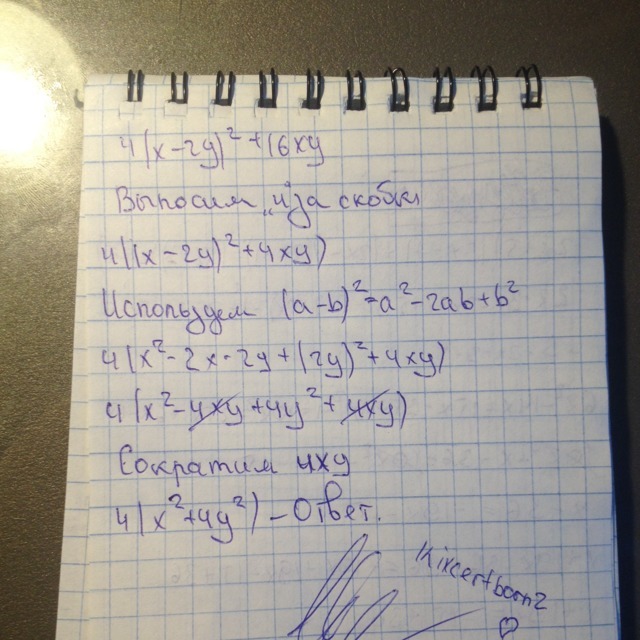 4(x-2y)²+16xy
Выносим „4" за скобки
4((x-2y)²+4xy)
Используем (a-b)²=a²-2ab+b²
4(x²-2x·2y+(2y)²+4xy)
4(x²-4xy+4y²+4xy)
Сократим 4xy
4(x²+4y²) - Ответ.